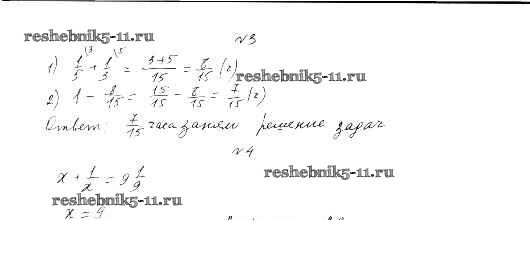 reshebnik5-11.ru
№3
1) 1/5 \3 + 1/3 \5 = 3+5/15 = 8/15 (г) reshebnik5-11.ru
2) 1 - 8/15 = 15/15 - 8/15 = 7/15 (г)
Ответ: 7/15 часа заняли решение задач
№4
x + 1/x = 9 1/9 reshebnik5-11.ru
reshebnik5-11.ru
x = 9